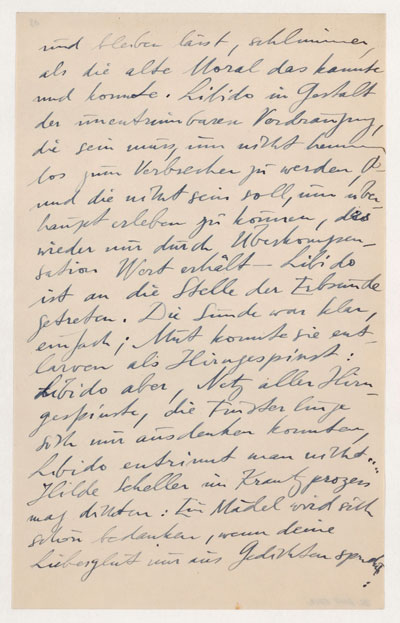 und bleiben lässt, schlimmer,
als die alte Moral das kannte
und konnte. Libido in Gestalt
der unentrinnbaren Verdrängung,
die sein muss, um nicht hemmungs
los zum Verbrecher zu werden,
und die nicht sein soll, um über
haupt erleben zu können, das
wieder nur durch Überkompen-
sation Wert erhält – Libido
ist an die Stelle der Erbsünde
getreten. Die Sünde war klar,
einfach; Mut konnte sie ent-
larven als Hirngespinst:
Libido aber, Netz aller Hirn
gespinste, die
sich nur ausdenken konnten,
Libido entrinnt man nicht...
Hilde Scheller im Krantzprozess
mag dichten: Ein Mädel wird sich
schön bedanken, wenn deine
Liebesglut nur aus Gedichten